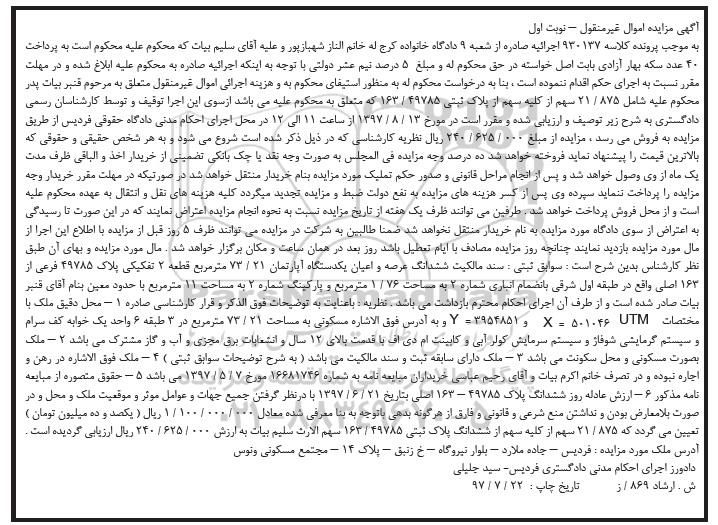 آگهی مزایده اموال غیرمنقول – نوبت اول
به موجب پرونده کلاسه ۹۳۰۱۳۷ اجرائیه صادره از شعبه ۹ دادگاه خانواده کرج له خانم الناز شهبازپور و علیه آقای سلیم بیات که محکوم علیه محکوم است به پرداخت
۴۰ عدد سکه بهار آزادی بابت اصل خواسته در حق محکوم له و مبلغ ۵ درصد نیم عشر دولتی با توجه به اینکه اجرائیه صادره به محکوم علیه ابلاغ شده و در مهلت
مقرر نسبت به اجرای حکم اقدام ننموده است ، بنا به درخواست محکوم له به منظور استیفای محکوم به و هزینه اجرائی اموال غیرمنقول متعلق به مرحوم قنبر بیات پدر
محکوم علیه شامل ۸۷۵ / ۲۱ سهم از کلیه سهم از پلاک ثبتی ۴۹۷۸۵ / ۱۶۳ که متعلق به محکوم علیه می باشد ازسوی این اجرا توقیف و توسط کارشناسان رسمی
دادگستری به شرح زیر توصیف و ارزیابی شده و مقرر است در مورخ ۱۳ / ۸ / ۱۳۹۷ از ساعت ۱۱ الی ۱۲ در محل اجرای احکام مدنی دادگاه حقوقی فردیس از طریق
مزایده به فروش می رسد ، مزایده از مبلغ ۰۰۰ / ۶۲۵ / ۲۴۰ ریال نظریه کارشناسی که در ذیل ذکر شده است شروع می شود و به هر شخص حقیقی و حقوقی که
بالاترین قیمت را پیشنهاد نماید فروخته خواهد شد ده درصد وجه مزایده فی المجلس به صورت وجه نقد یا چک بانکی تضمینی از خریدار اخذ و الباقی ظرف مدت
یک ماه از وی وصول خواهد شد و پس از انجام مراحل قانونی و صدور حکم تملیک مورد مزایده بنام خریدار منتقل خواهد شد در صورتیکه در مهلت مقرر خریدار وجه
مزایده را پرداخت ننماید سپرده وی پس از کسر هزینه های مزایده به نفع دولت ضبط و مزایده تجدید میگردد کلیه هزینه های نقل و انتقال به عهده محکوم علیه
است و از محل فروش پرداخت خواهد شد . طرفین می توانند ظرف یک هفته از تاریخ مزایده نسبت به نحوه انجام مزایده اعتراض نمایند که در این صورت تا رسیدگی
به اعتراض از سوی دادگاه مورد مزایده به نام خریدار منتقل نخواهد شد ضمنا طالبین به شرکت در مزایده می توانند ظرف ۵ روز قبل از مزایده با اطلاع این اجرا از
مال مورد مزایده بازدید نمایند چنانچه روز مزایده مصادف با ایام تعطیل باشد روز بعد در همان ساعت و مکان برگزار خواهد شد . مال مورد مزایده و بهای آن طبق
نظر کارشناس بدین شرح است : سوابق ثبتی : سند مالکیت ششدانگ عرصه و اعیان یکدستگاه آپارتمان ۲۱ / ۷۳ مترمربع قطعه ۲ تفکیکی پلاک ۴۹۷۸۵ فرعی از
۱۶۳ اصلی واقع در طبقه اول شرقی بانضمام انباری شماره ۲ به مساحت ۷۶ / ۱ مترمربع و پارکینگ شماره ۲ به مساحت ۱۱ مترمربع با حدود معین بنام آقای قنبر
بیات صادر شده است و از طرف آن اجرای احکام محترم بازداشت می باشد . نظریه : باعنایت به توضیحات فوق الذکر و قرار کارشناسی صادره ۱ – محل دقیق ملک با
مختصات UTM X = ۵۰۱۰۴۶ و Y = ۳۹۵۴۸۵۱ و به آدرس فوق الاشاره مسکونی به مساحت ۲۱ / ۷۳ مترمربع در ۳ طبقه ۶ واحد یک خوابه کف سرام
و سیستم گرمایشی شوفاژ و سیستم سرمایش کولر آبی و کابینت ام دی اف با قدمت بالای ۱۲ سال و انشعابات برق مجزی و آب و گاز مشترک می باشد ۲ – ملک
بصورت مسکونی و محل سکونت می باشد ۳ – ملک دارای سابقه ثبت و سند مالکیت می باشد ( به شرح توضیحات سوابق ثبتی ) ۴ – ملک فوق الاشاره در رهن و
اجاره نبوده و در تصرف خانم اکرم بیات و آقای رحیم عباسی خریداران مبایعه نامه به شماره ۱۶۶۸۱۷۴۶ مورخ ۷ / ۵ / ۱۳۹۷ می باشد ۵ – حقوق متصوره از مبایعه
نامه مذکور ۶ – ارزش عادله روز ششدانگ پلاک ۴۹۷۸۵ – ۱۶۳ اصلی بتاریخ ۲۱ / ۶ / ۱۳۹۷ با درنظر گرفتن جمیع جهات و عوامل موثر و موقعیت ملک و محل و در
صورت بلامعارض بودن و نداشتن منع شرعی و قانونی و فارق از هرگونه بدهی باتوجه به بنا معرفی شده معادل ۰۰۰ / ۰۰۰ / ۱۰۰ / ۱ ریال ( یکصد و ده میلیون تومان )
تعیین می گردد که ۸۷۵ / ۲۱ سهم از کلیه سهم از ششدانگ پلاک ثبتی ۴۹۷۸۵ / ۱۶۳ سهم الارث سلیم بیات به ارزش ۰۰۰ / ۶۲۵ / ۲۴۰ ریال ارزیابی گردیده است .
آدرس ملک مورد مزایده : فردیس – جاده ملارد – بلوار نیروگاه – خ زنبق – پلاک ۱۴ – مجتمع مسکونی ونوس
دادورز اجرای احکام مدنی دادگستری فردیس- سید جلیلی
ش . ارشاد ۸۶۹ / ز تاریخ چاپ : ۲۲ / ۷ / ۹۷